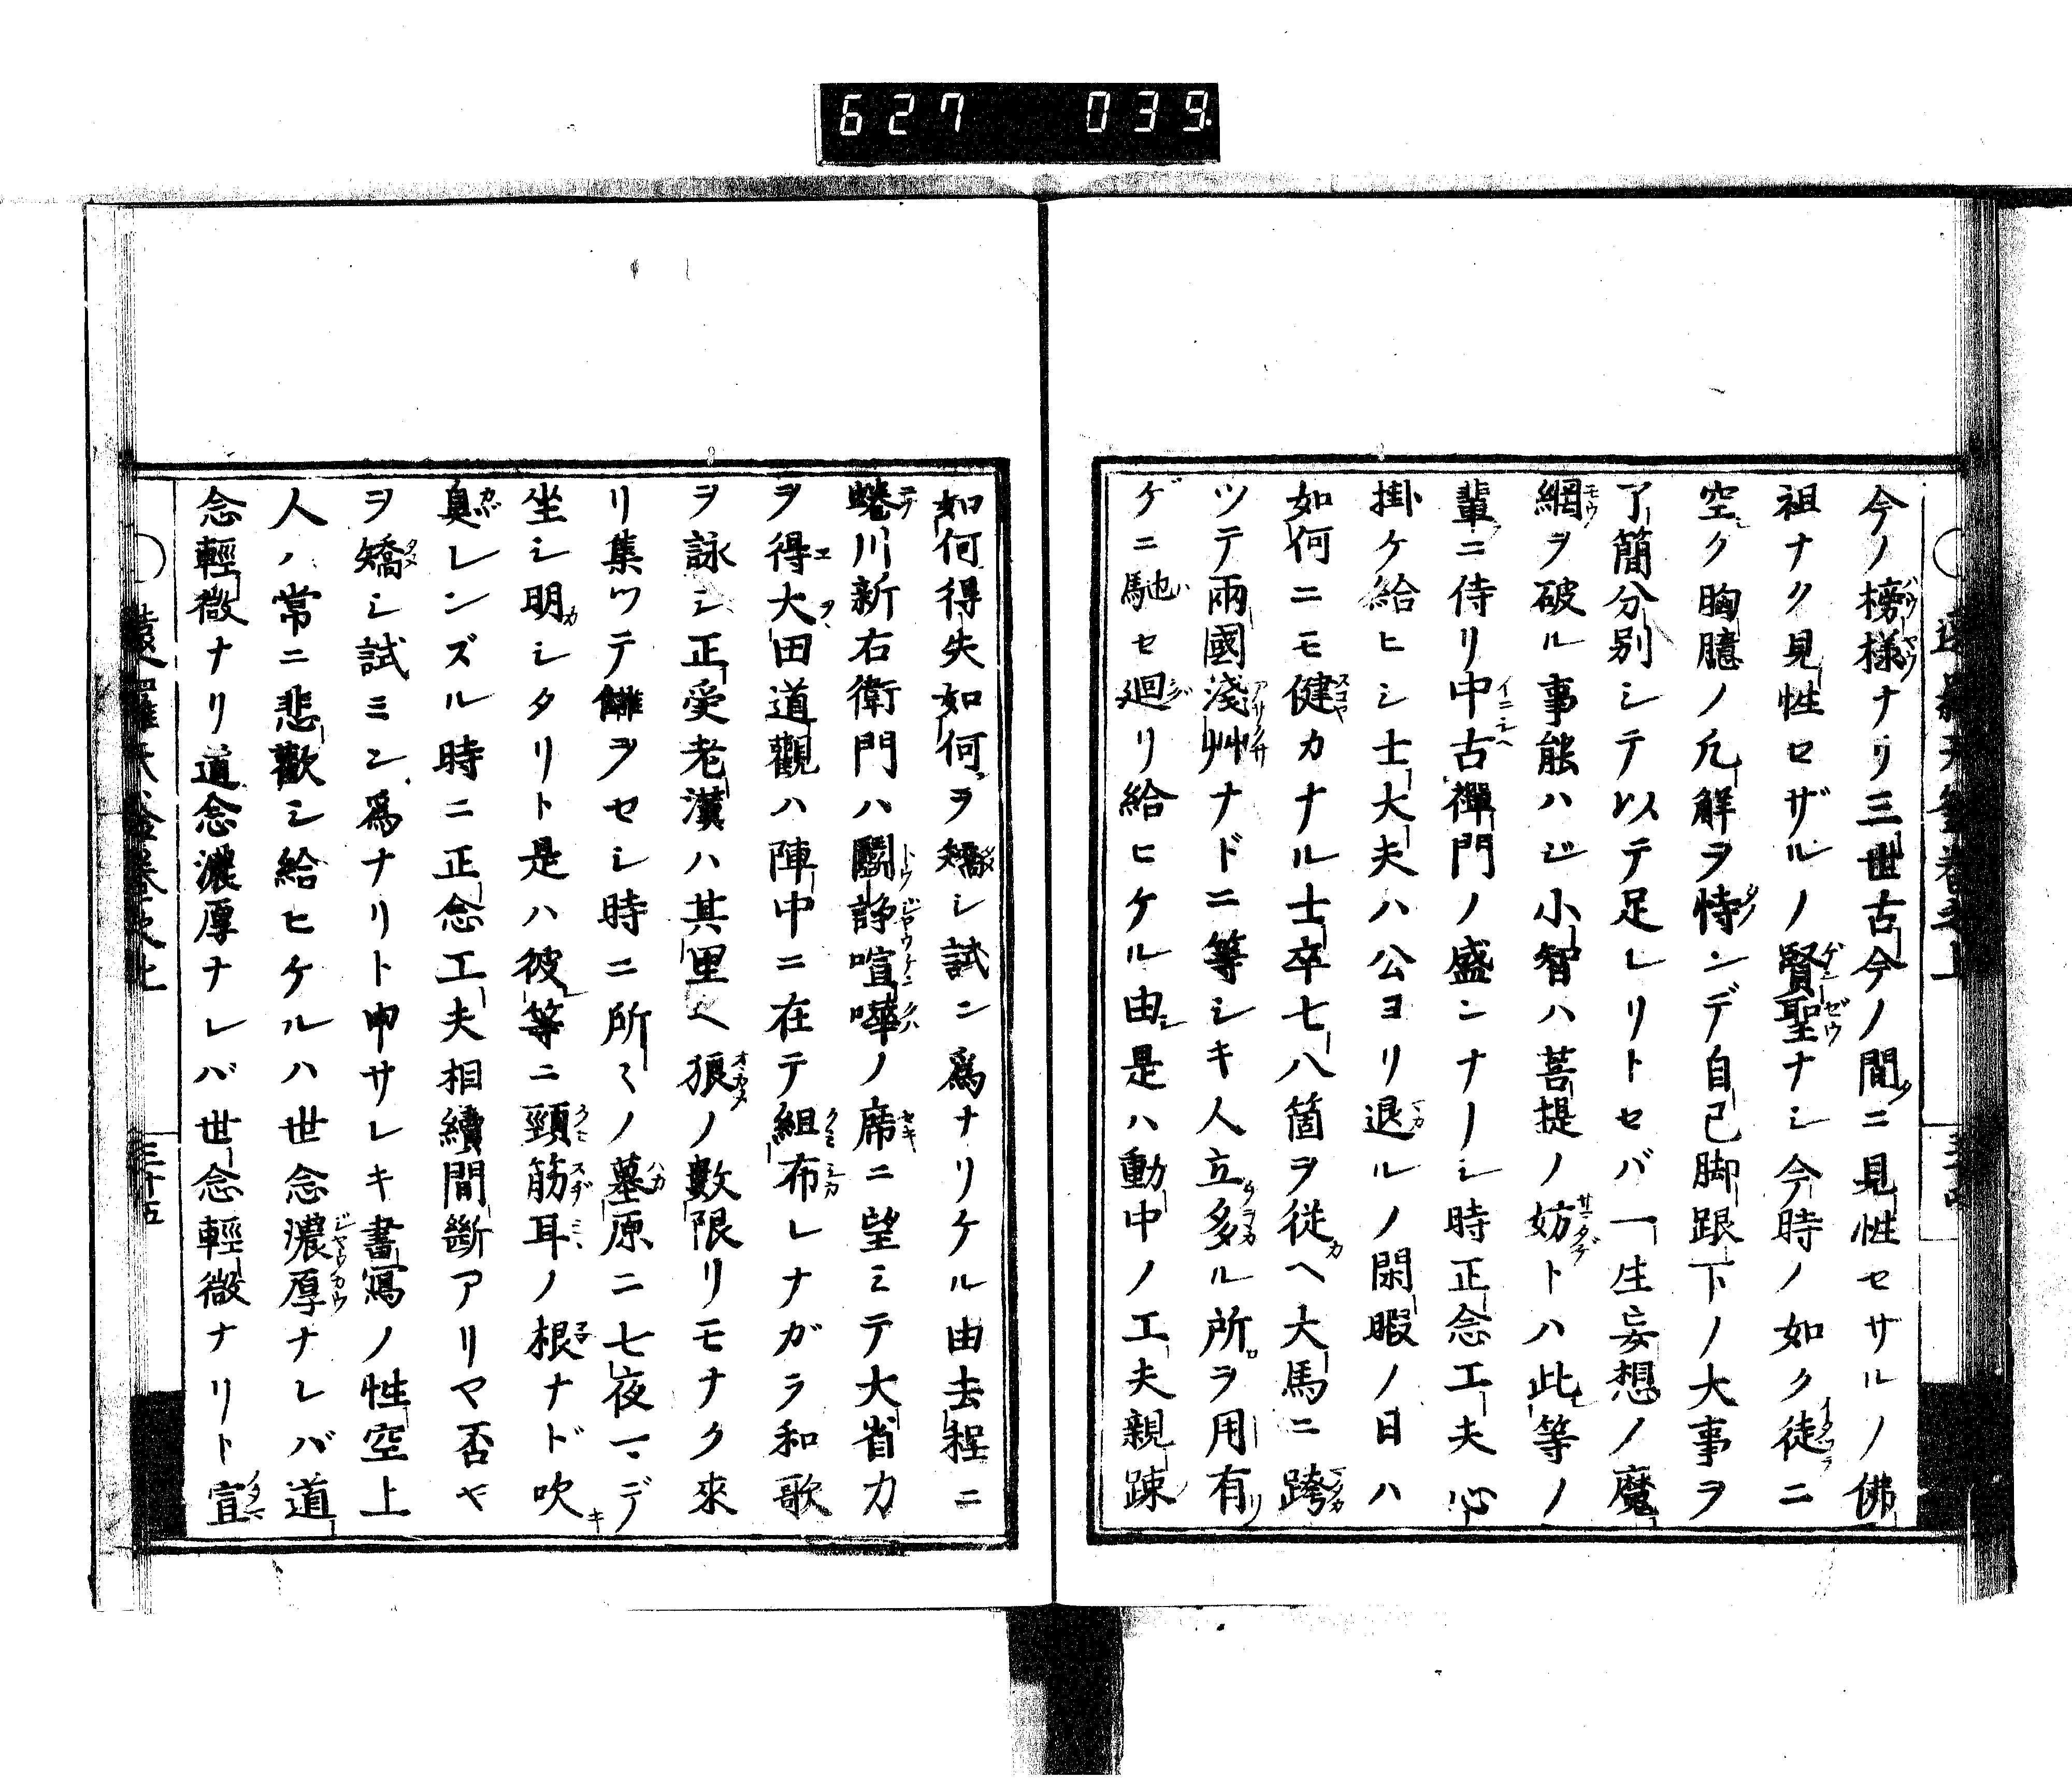 627 039
今ノ榜様ナリ三世古今ノ間ニ見性セサルノ佛
祖ナク見性セザルノ賢聖ナシ今時ノ如ク徒ニ
空ク胸臆ノ凢解ヲ恃ンデ自己脚跟下ノ大事ヲ
了簡分別シテ以テ足レリトセバ一生妄想ノ魔
網ヲ破ル事能ハジ小智ハ菩提ノ妨トハ此等ノ
輩ニ侍リ中古禪門ノ盛ンナリシ時正念工夫心
掛ケ給ヒシ士大夫ハ公ヨリ退ルノ閑暇ノ日ハ
如何ニモ健カナル士卒七八箇ヲ従ヘ大馬ニ跨
ツテ兩國淺艸ナドニ等シキ人立多ル所ヲ用有
ゲニ馳セ廻リ給ヒケル由是ハ動中ノ工夫親踈
如何得失如何ヲ矯シ試ン爲ナリケル由去程ニ
蜷川新右衛門ハ鬪諍喧嘩ノ席ニ望ミテ大省力
ヲ得大田道觀ハ陣中ニ在テ組布レナガラ和歌
ヲ詠シ正受老漢ハ其里ヘ狼ノ數限リモナク來
リ集ツテ讎ヲセシ時ニ所〻ノ墓原ニ七夜マデ
坐シ明シタリト是ハ彼等ニ頸筋耳ノ根ナド吹
臭レンズル時ニ正念工夫相續間斷アリヤ否ヤ
ヲ矯シ試ミン爲ナリト申サレキ書寫ノ性空上
人ノ常ニ悲歎シ給ヒケルハ世念濃厚ナレバ道
念輕微ナリ道念濃厚ナレバ世念輕微ナリト宣
三十五